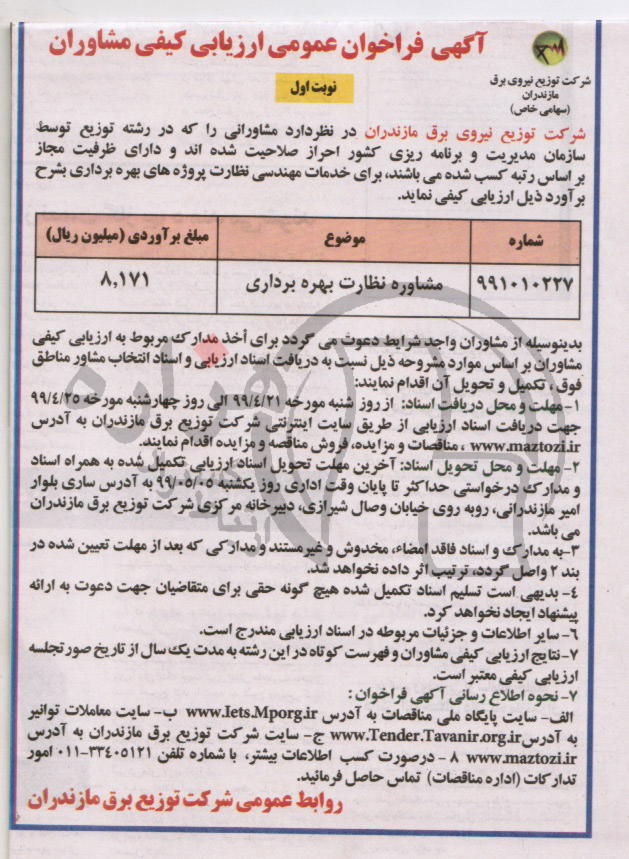 آگهی فراخوان عمومی ارزیابی کیفی مشاوران
شرکت توزیع نیروی برق
مازندران
(سهامی خاص)
نوبت اول
شرکت توزیع نیروی برق مازندران در نظردارد مشاورانی را که در رشته توزیع توسط
سازمان مدیریت و برنامه ریزی کشور احراز صلاحیت شده اند و دارای ظرفیت مجاز
بر اساس رتبه کسب شده می باشند، برای خدمات مهندسی نظارت پروژه های بهره برداری بشرح
برآورد ذیل ارزیابی کیفی نماید.
شماره موضوع مبلغ برآوردی (میلیون ریال)
۹۹۱۰۱۰۲۲۷ مشاوره نظارت بهره برداری ۸,۱۷۱
بدینوسیله از مشاوران واجد شرایط دعوت می گردد برای أخذ مدارک مربوط به ارزیابی کیفی
مشاوران بر اساس موارد مشروحه ذیل نسبت به دریافت اسناد ارزیابی و اسناد انتخاب مشاور مناطق
فوق، تکمیل و تحویل آن اقدام نمایند:
۱- مهلت و محل دریافت اسناد: از روز شنبه مورخه ۹۹/۴/۲۱ الی روز چهارشنبه مورخه ۹۹/۴/۲۵
جهت دریافت اسناد ارزیابی از طریق سایت اینترنتی شرکت توزیع برق مازندران به آدرس
www.maztozi.ir ، مناقصات و مزایده، فروش مناقصه و مزایده اقدام نمایند.
۲- مهلت و محل تحویل اسناد: آخرین مهلت تحویل اسناد ارزیابی تکمیل شده به همراه اسناد
و مدارک درخواستی حداکثر تا پایان وقت اداری روز یکشنبه ۹۹/۰۵/۰۵ به آدرس ساری بلوار
امیر مازندرانی، روبه روی خیابان وصال شیرازی، دبیرخانه مرکزی شرکت توزیع برق مازندران
می باشد.
۳-به مدارک و اسناد فاقد امضاء، مخدوش و غیرمستند و مدارکی که بعد از مهلت تعیین شده در
بند ۲ واصل گردد، ترتیب اثر داده نخواهد شد.
۴- بدیهی است تسلیم اسناد تکمیل شده هیچ گونه حقی برای متقاضیان جهت دعوت به ارائه
پیشنهاد ایجاد نخواهد کرد.
۶- سایر اطلاعات و جزئیات مربوطه در اسناد ارزیابی مندرج است.
۷-نتایج ارزیابی کیفی مشاوران و فهرست کوتاه در این رشته به مدت یک سال از تاریخ صورتجلسه
ارزیابی کیفی معتبر است.
۷- نحوه اطلاع رسانی آگهی فراخوان :
الف- سایت پایگاه ملی مناقصات به آدرس www.Iets.Mporg.ir ب- سایت معاملات توانیر
به آدرسwww.Tender.Tavanir.org.ir ج- سایت شرکت توزیع برق مازندران به آدرس
www.maztozi.ir ۸ - درصورت کسب اطلاعات بیشتر، با شماره تلفن ۳۳۴۰۵۱۲۱-۰۱۱ امور
تدارکات (اداره مناقصات) تماس حاصل فرمائید.
روابط عمومی شرکت توزیع برق مازندران